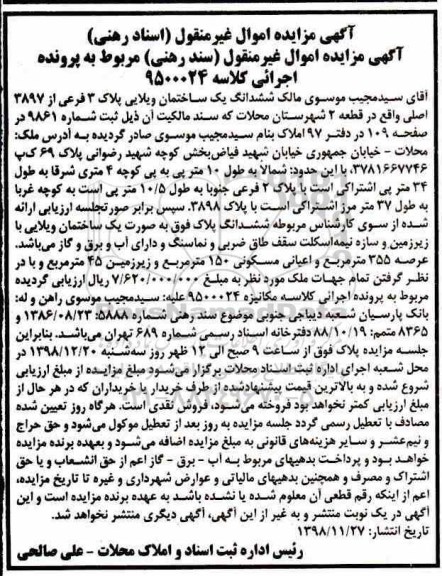 آگهی مزایده اموال غیرمنقول (اسناد رهنی)
آگهی مزایده اموال غیرمنقول (سند رهنی) مربوط به پرونده
اجرائی کلاسه ۹۵۰۰۰۲۴
آقای سیدمجیب موسوی مالک ششدانگ یک ساختمان ویلایی پلاک ۳ فرعی از ۳۸۹۷
اصلی واقع در قطعه ۲ شهرستان محلات که سند مالکیت آن ذیل ثبت شماره ۹۸۶۱ در
صفحه ۱۰۹ در دفتر ۹۷ املاک بنام سیدمجیب موسوی صادر گردیده به آدرس ملک:
محلات - خیابان جمهوری خیابان شهید فیاض‌بخش کوچه شهید رضوانی پلاک ۶۹ ک‌پ
۳۷۸۱۶۶۷۷۴۶. با این حدود: شمالا به طول ۱۰ متر پی به پی کوچه ۴ متری شرقا به طول
۳۴ متر پی اشتراکی است با پلاک ۲ فرعی جنوبا به طول ۱۰/۵ متر پی است به کوچه غربا
به طول ۳۷ متر مرز اشتراکی است با پلاک ۳۸۹۸. سپس برابر صورتجلسه ارزیابی ارائه
شده از سوی کارشناس مربوطه ششدانگ پلاک فوق به صورت یک ساختمان ویلایی با
زیرزمین و سازه نیمه‌اسکلت سقف طاق ضربی و نماسنگ و دارای آب و برق و گاز می‌باشد.
عرصه ۳۵۵ مترمربع و اعیانی مسکونی ۱۵۰ مترمربع و زیرزمین ۴۵ مترمربع و با در
نظر گرفتن تمام جهات ملک مورد نظر به مبلغ ۷/۶۲۰/۰۰۰/۰۰۰ ریال ارزیابی گردیده
مربوط به پرونده اجرائی کلاسه مکانیزه ۹۵۰۰۰۲۴ علیه: سیدمجیب موسوی راهن و له:
بانک پارسیان شعبه دیباجی جنوبی موضوع سند رهنی شماره: ۵۸۸۸- ۱۳۸۶/۰۸/۲۳ و
۸۳۶۵ متمم: ۸۸/۱۰/۱۹ دفترخانه اسناد رسمی شماره ۶۸۹ تهران می‌باشد. بنابراین
جلسه مزایده پلاک فوق از ساعت ۹ صبح الی ۱۲ ظهر روز سه‌شنبه ۱۳۹۸/۱۲/۲۰ در
محل شعبه اجرای اداره ثبت اسناد محلات برگزار می‌شود مبلغ مزایده از مبلغ ارزیابی
شروع شده و به بالاترین قیمت پیشنهادشده از طرف خریدار یا خریداران که در هر حال از
مبلغ ارزیابی کمتر نخواهد بود فروخته می‌شود، فروش نقدی است. هرگاه روز تعیین شده
مصادف با تعطیل رسمی گردد جلسه مزایده به روز بعد از تعطیل موکول می‌شود و حق حراج
و نیم‌عشر و سایر هزینه‌های قانونی به مبلغ مزایده اضافه می‌شود و بعهده برنده مزایده
خواهد بود و پرداخت بدهیهای مربوط به آب - برق - گاز اعم از حق انشعاب و یا حق
اشتراک و مصرف و همچنین بدهیهای مالیاتی و عوارض شهرداری و غیره تا تاریخ مزایده،
اعم از اینکه رقم قطعی آن معلوم شده یا نشده باشد به عهده برنده مزایده است و این
آگهی در یک نوبت منتشر و به غیر از این آگهی، آگهی دیگری منتشر نخواهد شد.
تاریخ انتشار: ۱۳۹۸/۱۱/۲۷
رئیس اداره ثبت اسناد و املاک محلات - علی صالحی